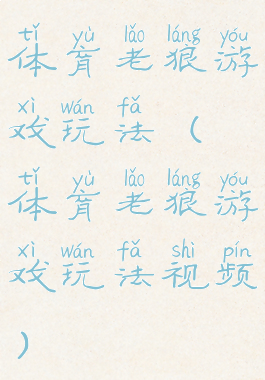 tǐ yù lǎo láng yóu
体育老狼游
xì wán fǎ
戏玩法（
tǐ yù lǎo láng yóu
体育老狼游
xì wán fǎ shì pín
戏玩法视频
）